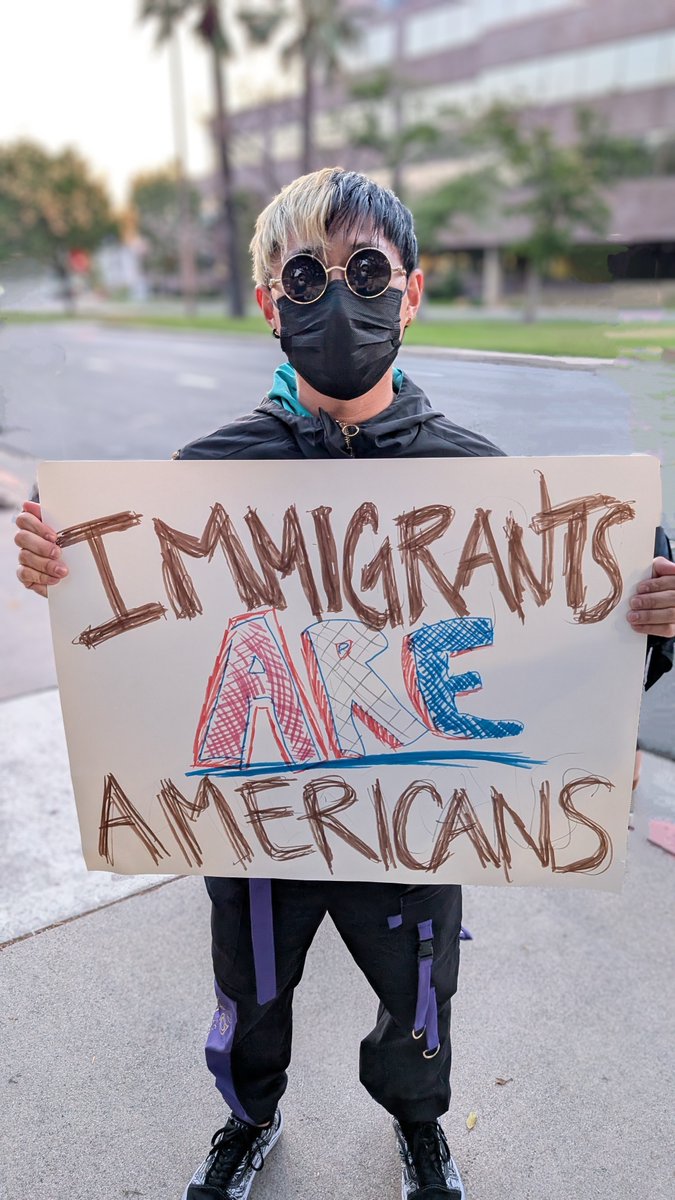 IMMIGRANTS
ARE
AMERICANS